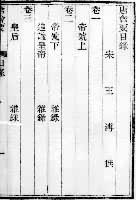 唐會要目錄
宋 王 溥 撰
卷一
帝號上
卷二
帝號下 雜錄
追諡皇帝 雜錄
卷三
皇后 雜錄